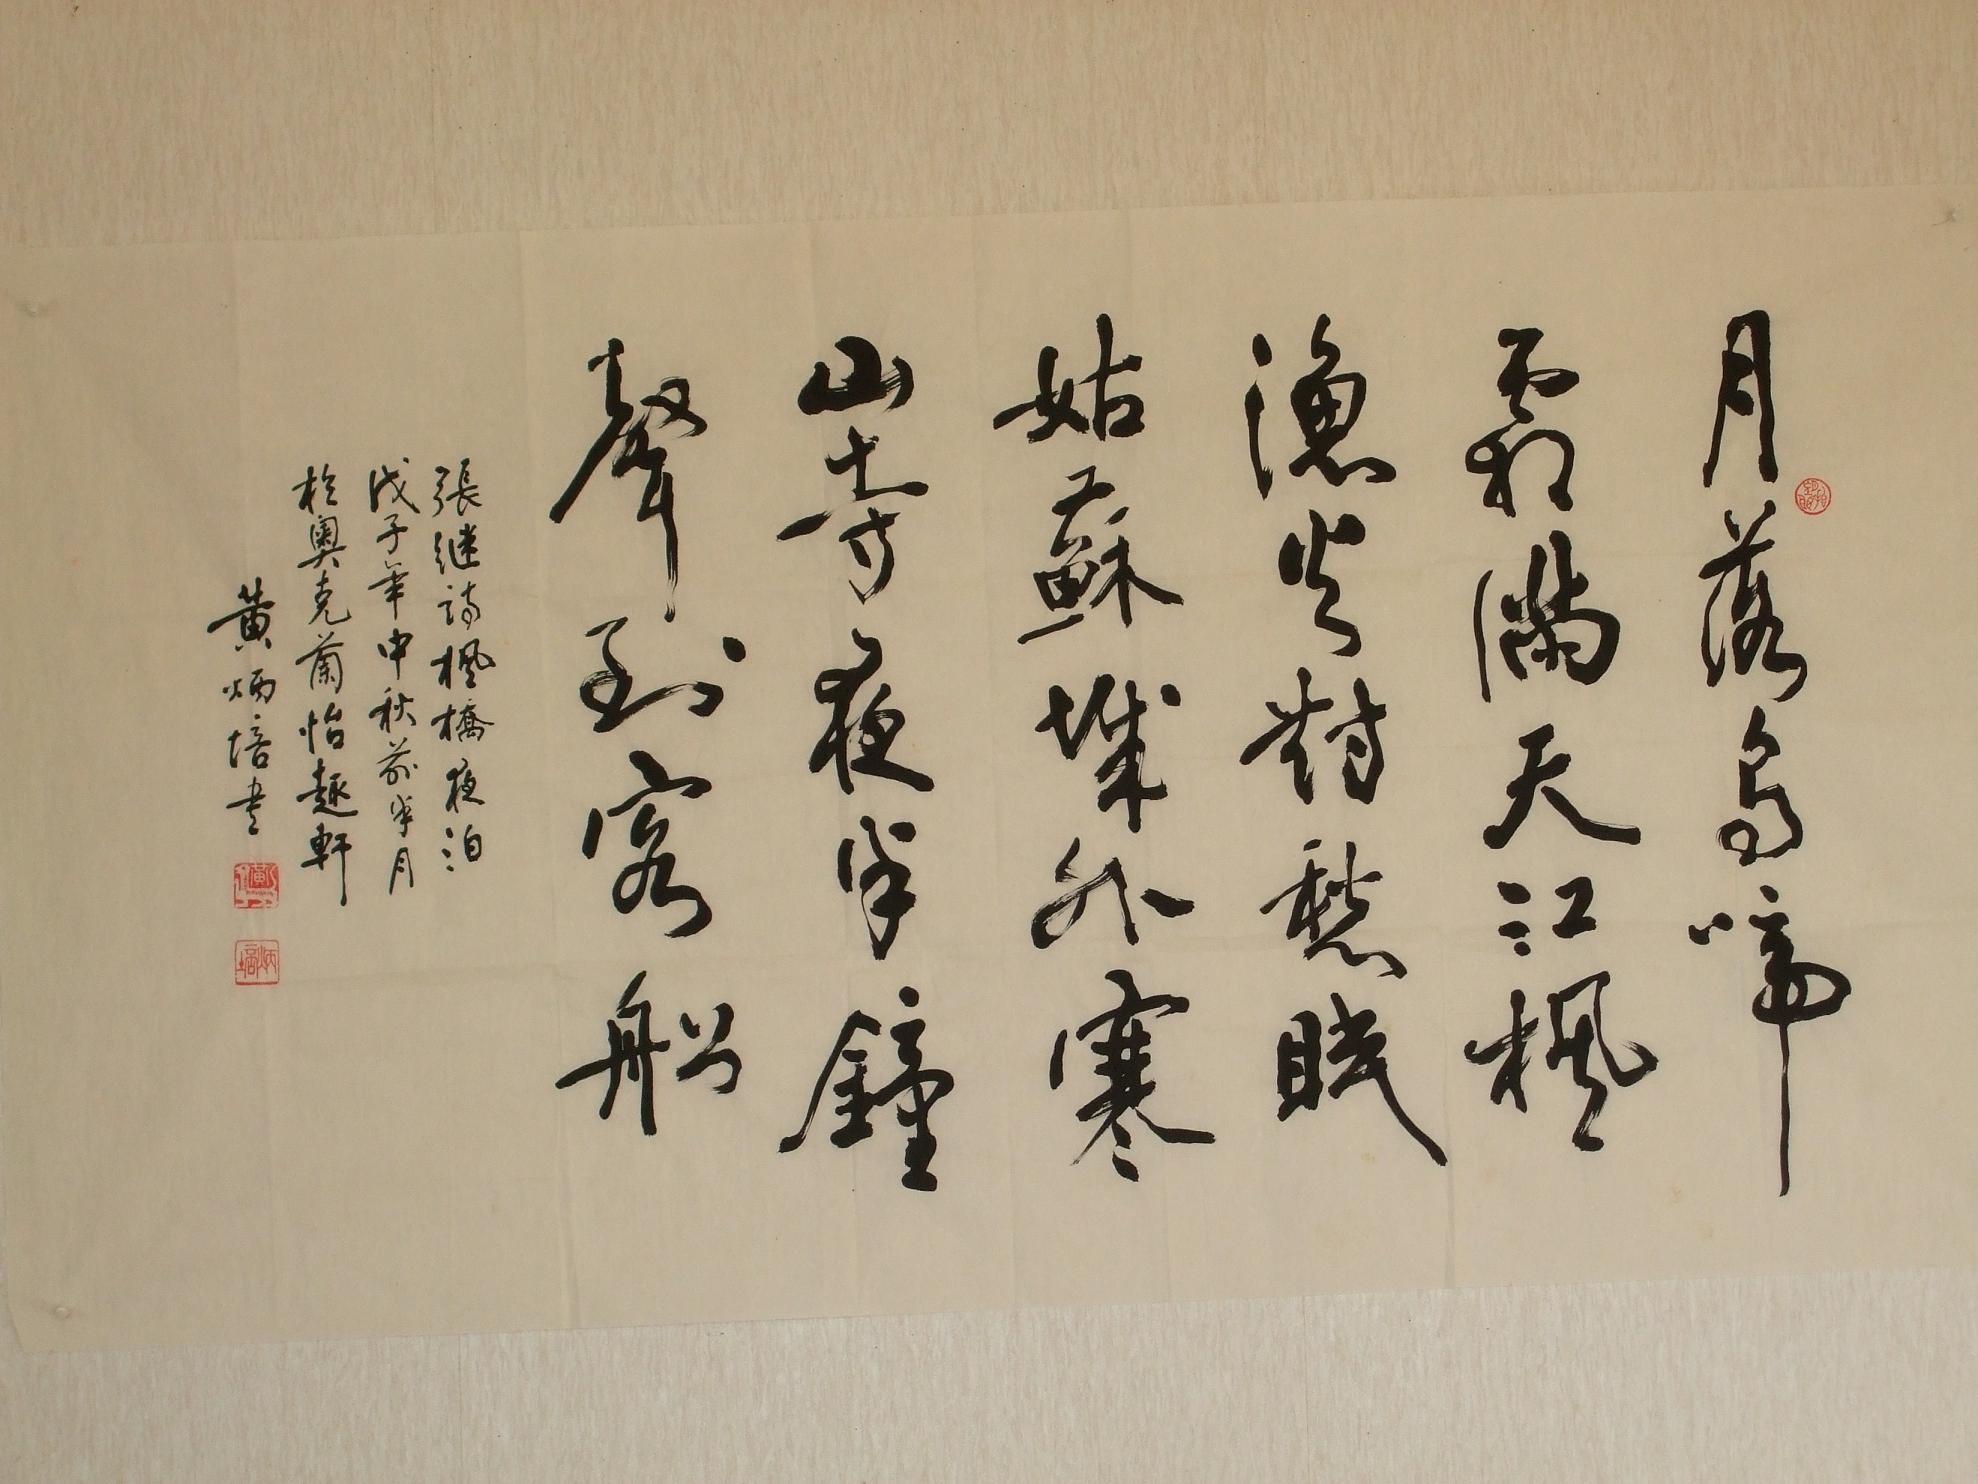 月落烏啼
霜滿天江楓
漁火對愁眠
姑蘇城外寒
山寺夜半鐘
聲到客船
張继詩楓橋夜泊
戊子年中秋前半月
於奧克蘭怡趣軒
黄炳培書
炳培